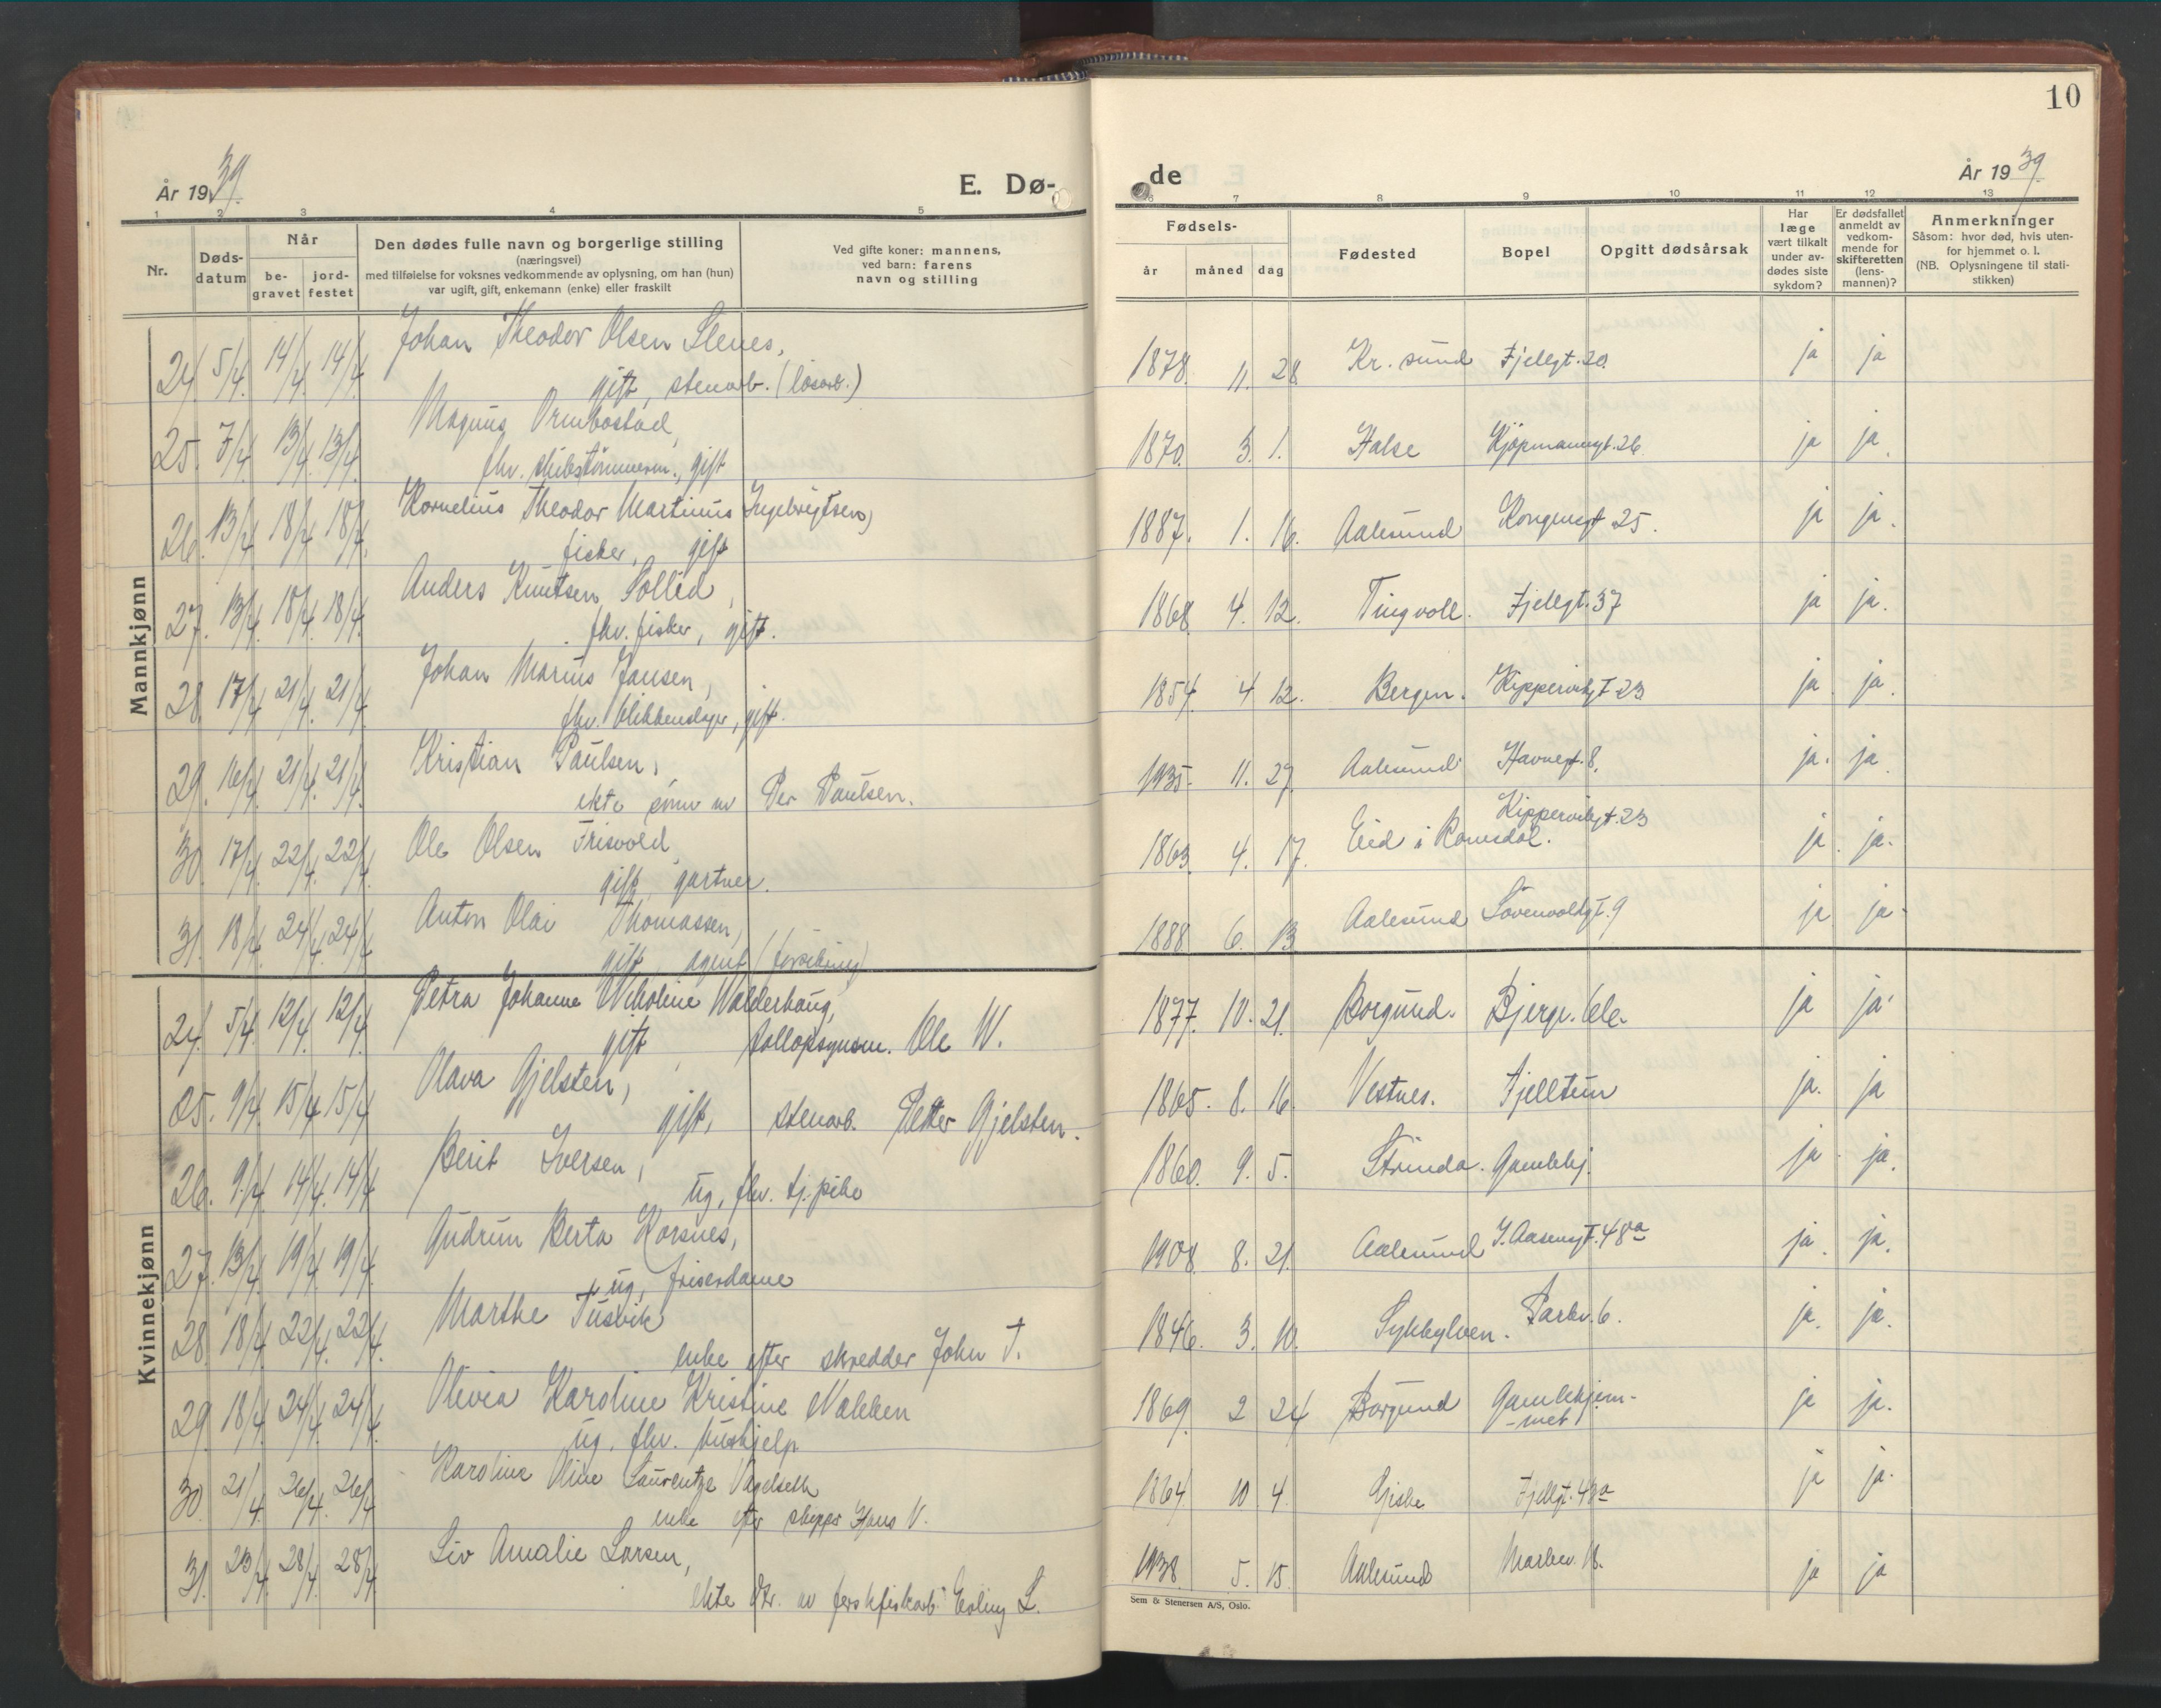 10
År 1939.
E. Dø-
de
År 1939.
1 2 3 4 5 6 7 8 9 10 11 12 13
Nr.
Døds-
datum
Når
be-
gravet
jord-
festet
Den dødes fulle navn og borgerlige stilling
(næringsvei)
med tilføielse for voksnes vedkommende av oplysning, om han (hun)
var ugift, gift, enkemann (enke) eller fraskilt
Ved gifte koner: mannens,
ved barn: farens
navn og stilling
Fødsels-
år måned dag
Fødested
Bopel
Opgitt dødsårsak
Har
læge
vært tilkalt
under av-
dødes siste
sykdom?
Er dødsfallet
anmeldt av
vedkom-
mende for
skifteretten
(lens-
mannen)?
Anmerkninger
Såsom: hvor død, hvis uten-
for hjemmet o. l.
(NB. Oplysningene til stati-
stikken)
Mannkjønn
24. 5/4. 14/4. 14/4. Johan Theodor Olsen Slenes, 1878. 11. 28 Kr. sund Fjellgt. 20. ja ja
gift, stenarb. (løsarb.)
25. 7/4. 13/4. 13/4. Magnus Ormbostad, 1870. 3. 1. Halse Kjøpmannsgt. 26 ja ja.
fhv. skibstømmerm., gift
26. 13/4. 18/4. 18/4. Kornelius Theodor Martinus Ingebrigtsen, 1887. 1. 16. Aalesund Kongensgt 25. ja ja.
fisker, gift
27. 13/4. 18/4. 18/4. Anders Knutsen Sollid, 1868. 4. 12. Tingvoll. Fjellgt. 37 ja ja.
fhv. fisker, gift.
28. 17/4. 21/4. 21/4. Johan Marius Jansen, 1854. 4 12. Bergen. Kippervikgt 23 ja. ja.
fhv. blikkenslager, gift.
29. 16/4. 21/4. 21/4. Kristian Paulsen, 1935. 11. 27. Aalesund Havnegt. 8. ja. ja.
ekte sønn av Per Paulsen.
30. 17/4. 22/4. 22/4. Ole Olsen Frisvold, 1863. 4. 17. Eid i Romsdal. Kippervikgt. 23 ja. ja.
gift, gartner.
31. 18/4. 24/4. 24/4. Anton Olai Thomassen, 1888 6. 13 Aalesund Løvenvoldgt. 9 ja ja.
gift, agent (forsikring)
Kvinnekjønn
24. 5/4. 12/4. 12/4. Petra Johanne Nikoline Walderhaug, 1877. 10. 21. Borgund. Bjergv. 61c. ja ja.
gift, tollopsynsm. Ole W.
25. 9/4. 15/4. 15/4. Olava Gjelsten, 1865. 8. 16. Vestnes. Fjelltun ja. ja
gift, stenarb. Petter Gjelsten.
26. 9/4. 14/4. 14/4. Berit Iversen, 1860. 9. 5. Strinda. Gamlehj. ja. ja.
ug., fhv. tj. pike
27. 13/4. 19/4. 19/4. Gudrun Berta Korsnes, 1908. 8. 21. Aalesund I. Aasensgt. 48a ja. ja.
ug, friserdame
28. 18/4. 22/4. 22/4. Marthe Tusvik 1846. 3. 10. Sykkylven. Parkv. 6. ja. ja.
enke efter skredder John T.
29. 18/4. 24/4. 24/4. Olivia Karoline Kristine Nakken 1869. 2 24 Borgund Gamlehjem-
-met ja ja.
ug. fhv. hushjelp
30. 21/4. 26/4. 26/4. Karoline Oline Laurentze Vagelseth 1864. 10 4. Giske Fjellgt. 43a ja ja.
enke efter skipper Hans V.
31. 23/4. 28/4. 28/4. Liv Amalie Larsen, 1938. 5. 15. Aalesund Markev. 18. ja ja
ekte dtr. av ferskfiskarb. Erling L.
Sem & Stenersen A/S, Oslo.